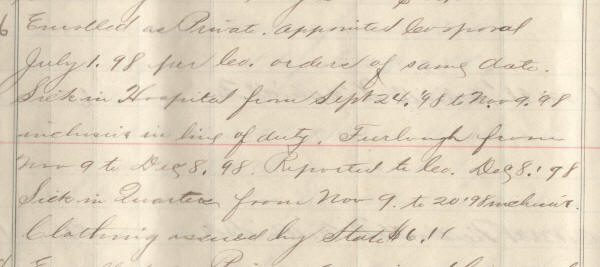 6 Enrolled as Private. appointed Corporal
July 1. 98 per Co. orders of same date.
Sick in Hospital from Sept 24. '98 to Nov. 9. '98
inclusive in line of duty. Furlough from
Nov 9 to Dec 8. 98. Reported to Co. Dec 8. '98
Sick in Quarters from Nov 9. to 20 '98 inclusive.
Clothing issued by State $6.11